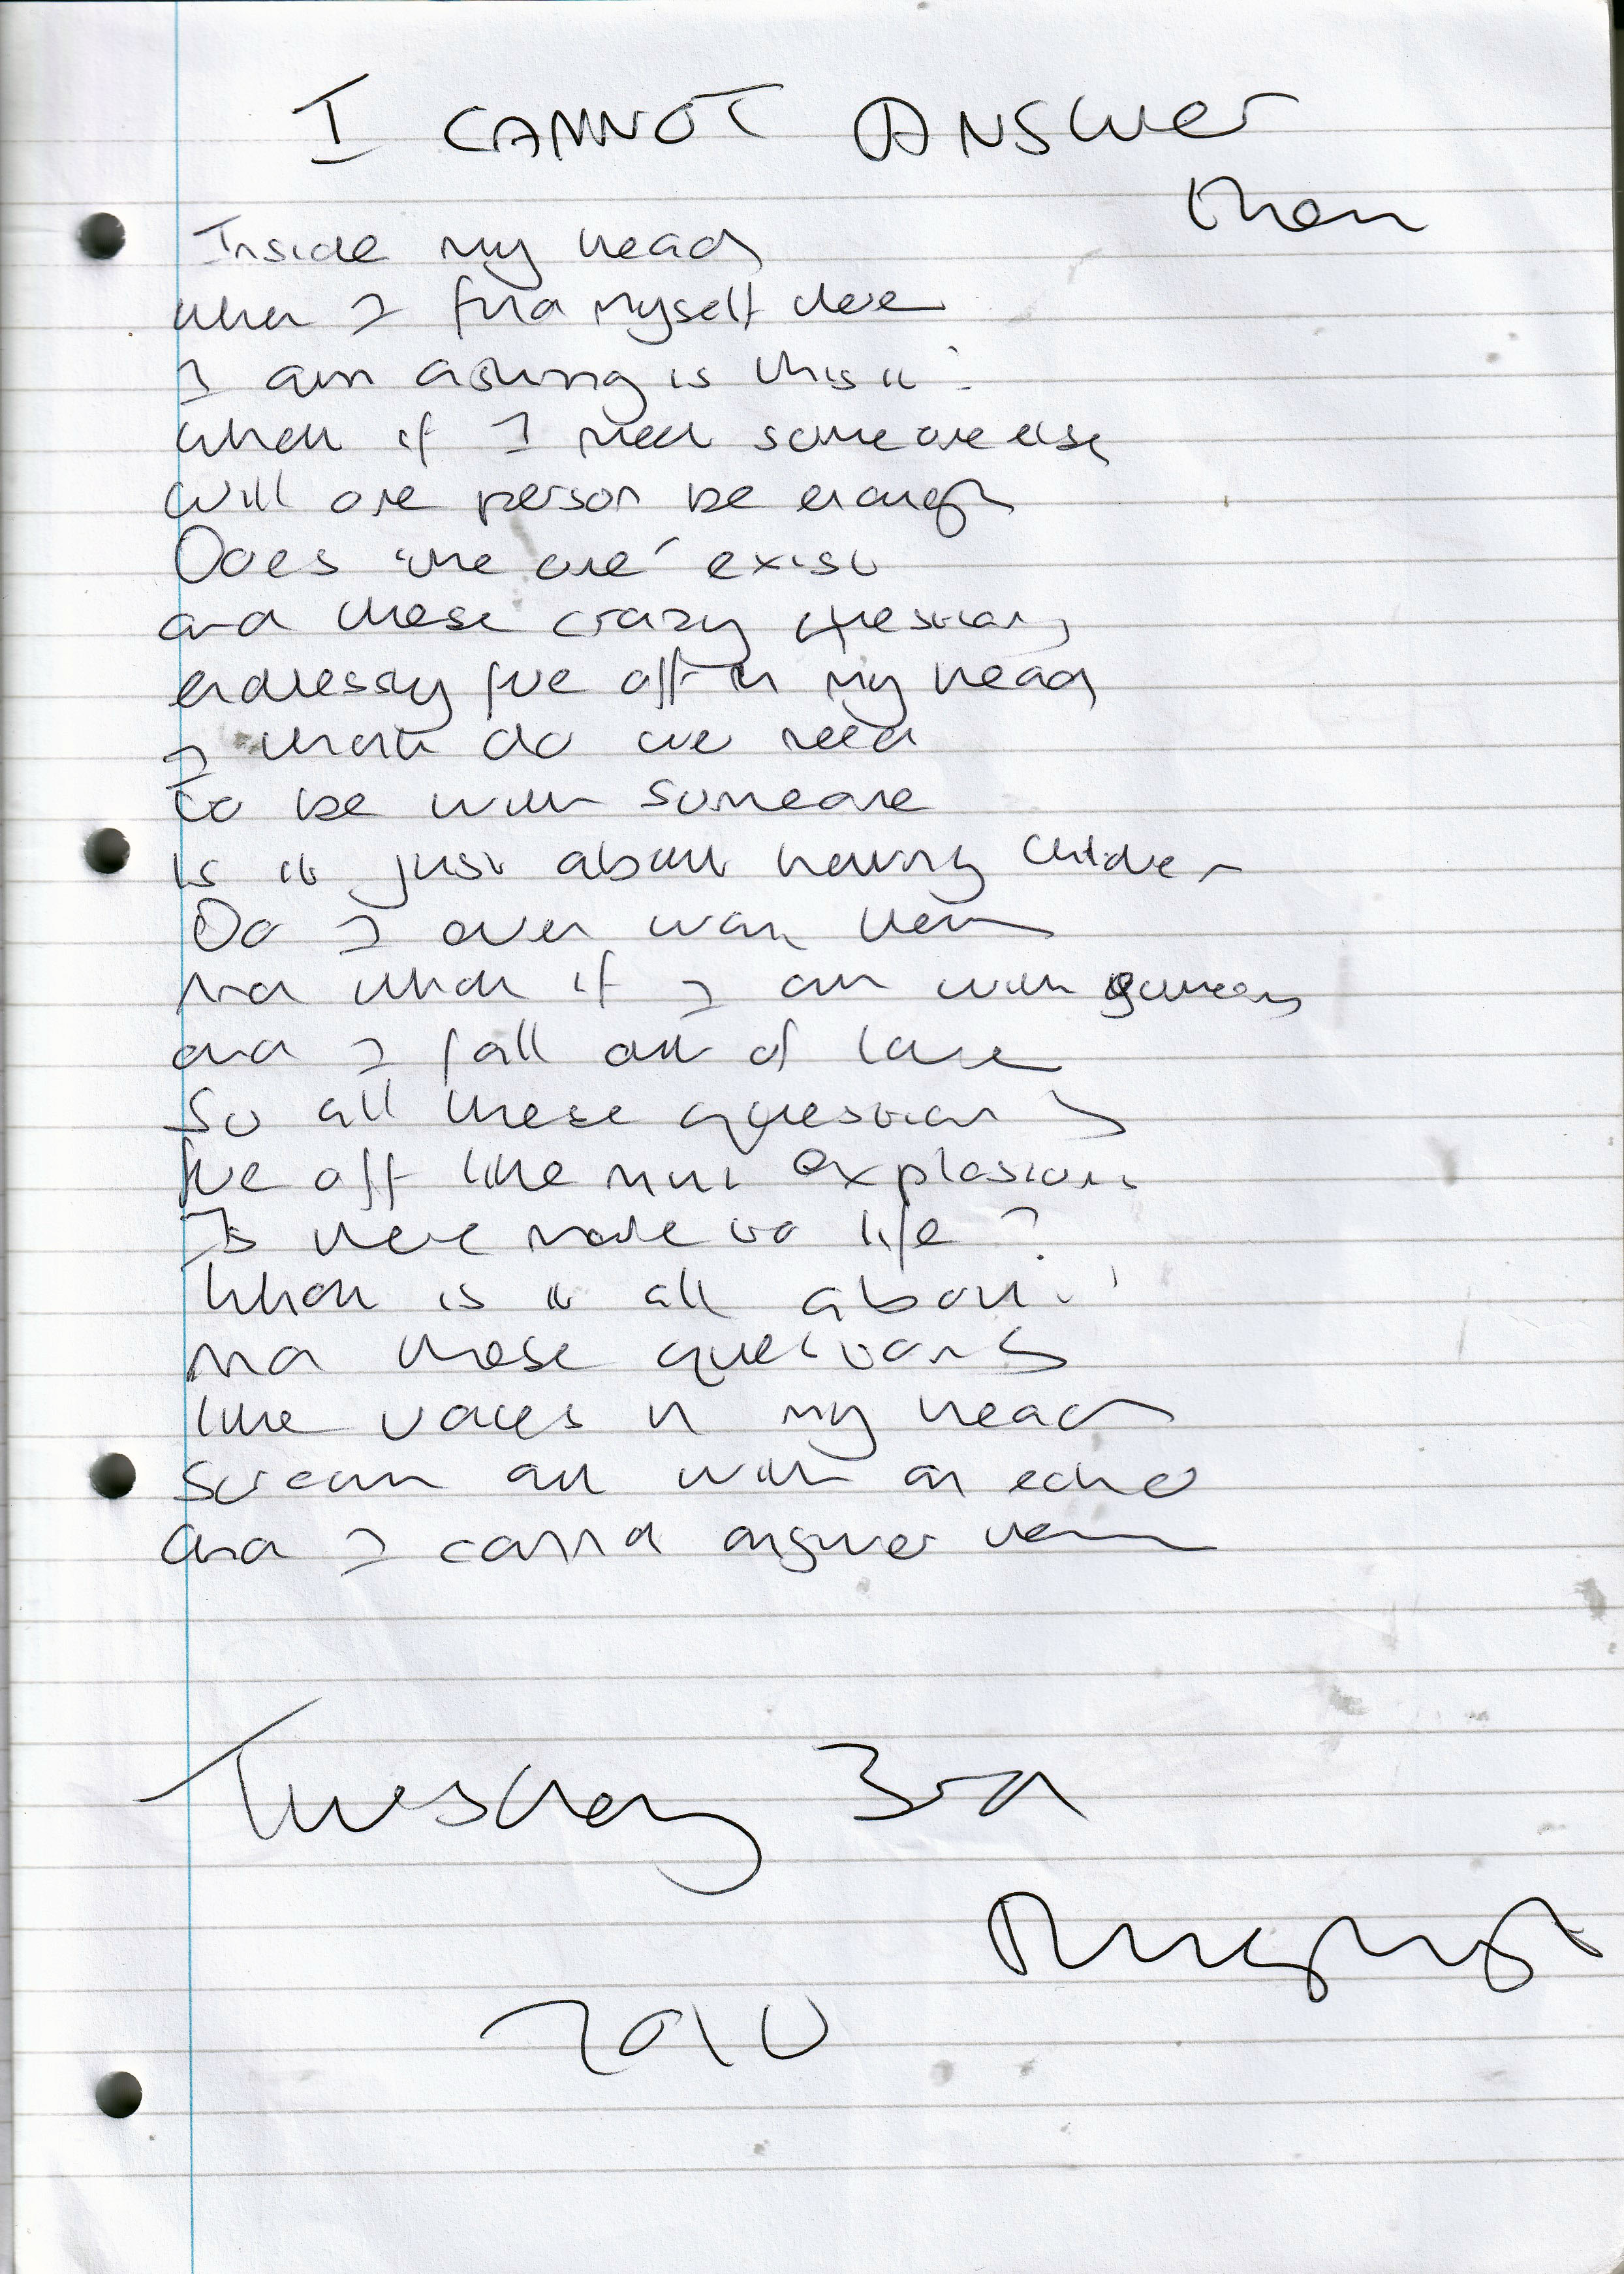 I CANNOT ANSWER
them
Inside my head
when I find myself there
I am asking is this it?
what if I meet someone else
will one person be enough
Does 'the one' exist
and these crazy questions
endlessly fire off in my head
I think do we need
to be with someone
is it just about having children
Do I even want them
And what if I am with someone
and I fall out of love
So all these questions
fire off like mini explosions
Is there more to life?
What is it all about?
And these questions
like voices in my head
scream out with an echo
and I cannot answer them
Tuesday 3rd
August
2010